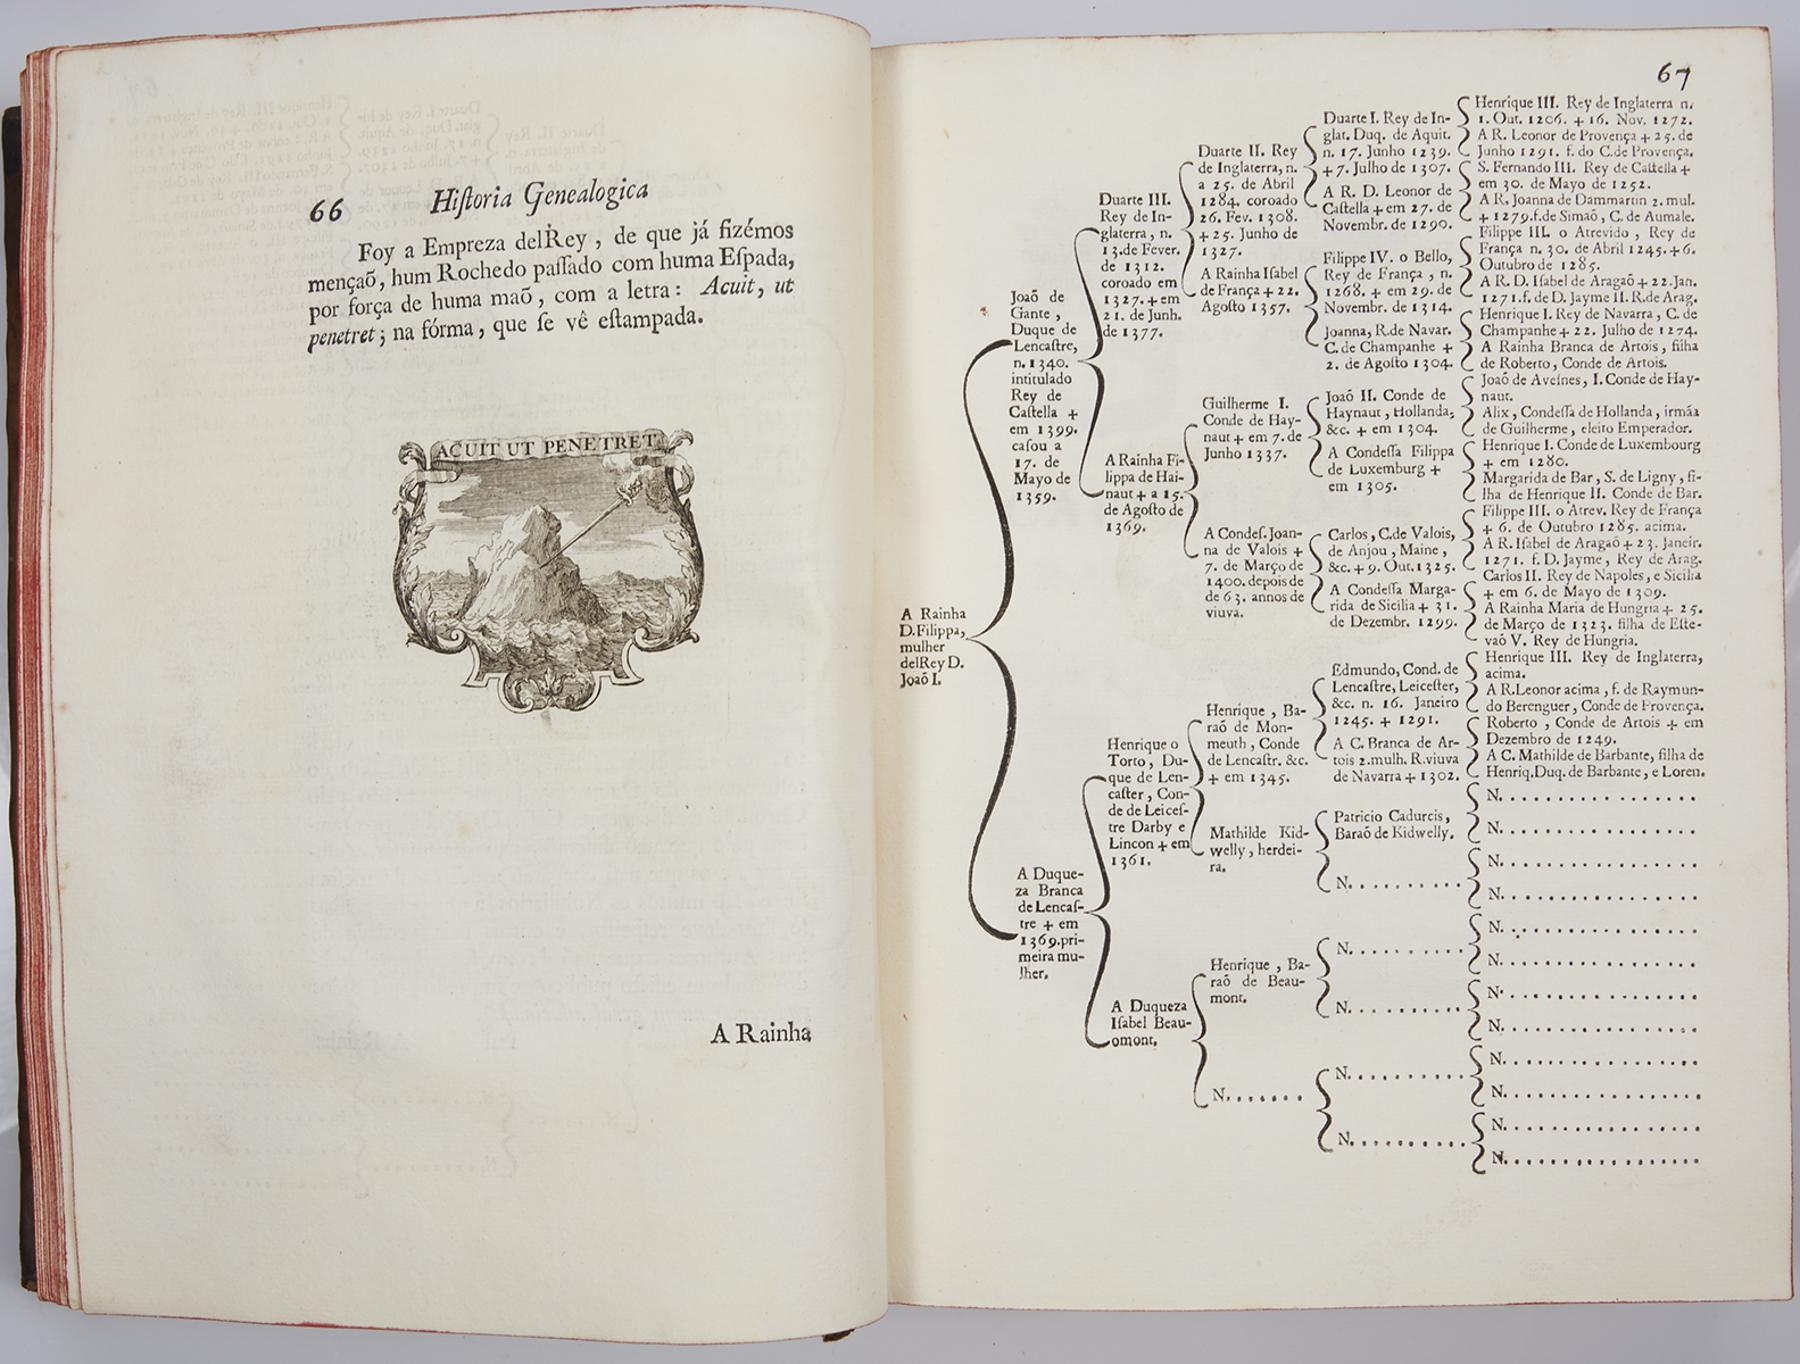 66
Hiſtoria Genealogica
Foy a Empreza delRey, de que já fizémos
mençaõ, hum Rochedo paſſado com huma Eſpada,
por força de huma maõ, com a letra: Acuit, ut
penetret; na fórma, que ſe vê eſtampada.
ACUIT UT PENETRET
A Rainha
67
A Rainha
D.Filippa,
mulher
delRey D.
Joaõ I.
Joaõ de
Gante,
Duque de
Lencaſtre,
n. 1340.
intitulado
Rey de
Caſtella +
em 1399.
caſou a
17. de
Mayo de
1359.
A Duque-
za Branca
de Lencaſ-
tre + em
1369.pri-
meira mu-
lher.
Duarte III.
Rey de In-
glaterra, n.
13.de Fever.
de 1312.
coroado em
1327.+em
21. de Junh.
de 1377.
A Rainha Fi-
lippa de Hai-
naut + a 15.
de Agoſto de
1369.
Henrique o
Torto, Du-
que de Len-
caſter, Con-
de de Leiceſ-
tre Darby e
Lincon + em
1361.
A Duqueza
Iſabel Beau-
omont.
Duarte II. Rey
de Inglaterra, n.
a 25. de Abril
1284. coroado
26. Fev. 1308.
+ 25. Junho de
1327.
A Rainha Iſabel
de França + 22.
Agoſto 1357.
Guilherme I.
Conde de Hay-
naut + em 7. de
Junho 1337.
A Condeſ. Joan-
na de Valois +
7. de Março de
1400. depois de
de 63. annos de
viuva.
Henrique, Ba-
raõ de Mon-
meuth, Conde
de Lencaſtr. &c.
+ em 1345.
Mathilde Kid-
welly, herdei-
ra.
Henrique, Ba-
raõ de Beau-
mont.
N.......
Duarte I. Rey de In-
glat. Duq. de Aquit.
n. 17. Junho 1239.
+ 7. Julho de 1307.
A R. D. Leonor de
Caſtella + em 27. de
Novembr. de 1290.
Filippe IV. o Bello,
Rey de França, n.
1268. + em 29. de
Novembr. de 1314.
Joanna, R.de Navar.
C. de Champanhe +
2. de Agoſto 1304.
Joaõ II. Conde de
Haynaut, Hollanda;
&c. + em 1304.
A Condeſſa Filippa
de Luxemburg +
em 1305.
Carlos, C.de Valois,
de Anjou, Maine,
&c. + 9. Out. 1325.
A Condeſſa Marga-
rida de Sicilia + 31.
de Dezembr. 1299.
Edmundo, Cond. de
Lencaſtre, Leiceſter,
&c. n. 16. Janeiro
1245. + 1291.
A C. Branca de Ar-
tois 2.mulh. R.viuva
de Navarra + 1302.
Patricio Cadurcis,
Baraõ de Kidwelly.
N..........
N..........
N..........
N..........
N..........
Henrique III. Rey de Inglaterra n.
1. Out. 1206. + 16. Nov. 1272.
A R. Leonor de Provença + 25. de
Junho 1291. f. do C.de Provença.
S. Fernando III. Rey de Caſtella +
em 30. de Mayo de 1252.
A R. Joanna de Dammartin 2. mul.
+ 1279.f.de Simaõ, C. de Aumale.
Filippe III. o Atrevido, Rey de
França n. 30. de Abril 1245. + 6.
Outubro de 1285.
A R. D. Iſabel de Aragaõ + 22. Jan.
1271.f. de D. Jayme II. R.de Arag.
Henrique I. Rey de Navarra, C. de
Champanhe + 22. Julho de 1274.
A Rainha Branca de Artois, filha
de Roberto, Conde de Artois.
Joaõ de Aveſnes, I. Conde de Hay-
naut.
Alix, Condeſſa de Hollanda, irmãa
de Guilherme, eleito Emperador.
Henrique I. Conde de Luxembourg
+ em 1280.
Margarida de Bar, S. de Ligny, fi-
lha de Henrique II. Conde de Bar.
Filippe III. o Atrev. Rey de França
+ 6. de Outubro 1285. acima.
A R. Iſabel de Aragaõ + 23. Janeir.
1271. f. D. Jayme, Rey de Arag.
Carlos II. Rey de Napoles, e Sicilia
+ em 6. de Mayo de 1309.
A Rainha Maria de Hungria + 25.
de Março de 1323. filha de Eſte-
vaõ V. Rey de Hungria.
Henrique III. Rey de Inglaterra,
acima.
A R.Leonor acima, f. de Raymun-
do Berenguer, Conde de Provença.
Roberto, Conde de Artois + em
Dezembro de 1249.
A C. Mathilde de Barbante, filha de
Henriq.Duq. de Barbante, e Loren.
N.................
N.................
N.................
N.................
N.................
N.................
N.................
N.................
N.................
N.................
N.................
N.................